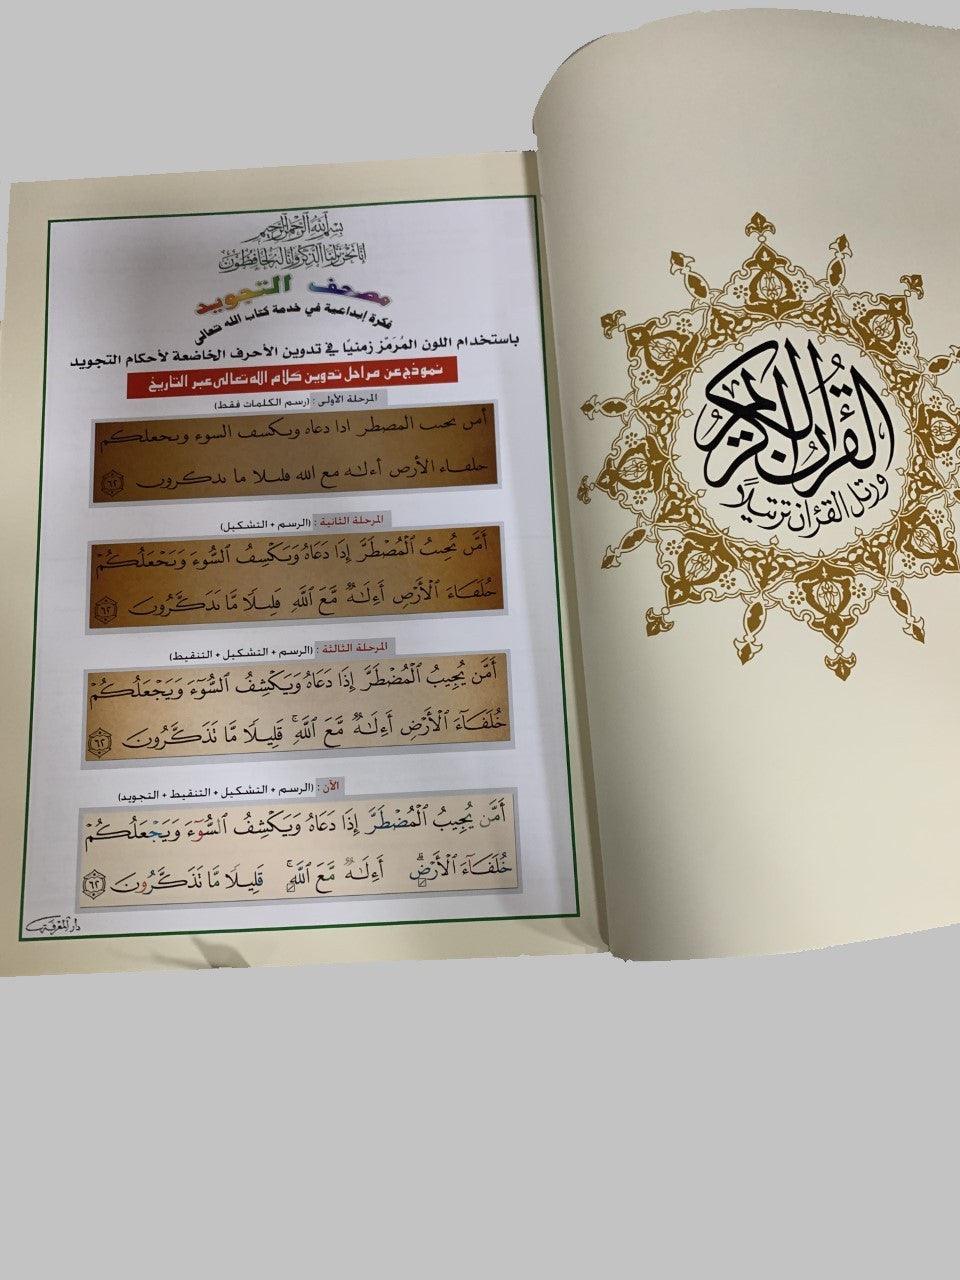 القرآن الكريم
ورتل القرآن ترتيلا
بسم الله الرحمن الرحيم
إنا نحن نزلنا الذكر وإنا له لحافظون
مصحف التجويد
فكرة إبداعية في خدمة كتاب الله تعالى
باستخدام اللون المُرَمّز زمنيًا في تدوين الأحرف الخاضعة لأحكام التجويد
نموذج عن مراحل تدوين كلام الله تعالى عبر التاريخ
المرحلة الأولى : (رسم الكلمات فقط)
أمن ٮحٮٮ المصطر ادا دعاه وٮكسف السوء وٮحعلكم
حلفاء الأرص أءلـٰه مع الله فلٮلا ما ٮدكرون ٦٢
المرحلة الثانية : (الرسم + التشكيل)
أَمَّن ٮُحِٮٮُ ٱلْمُصْطَرَّ إِدَا دَعَاهُ وَٮَكْسِفُ ٱلسُّوٓءَ وَٮَحْعَلُكُمْ
حُلَفَآءَ ٱلْأَرْصِ أَءِلَـٰهٌ مَّعَ ٱللَّهِ فَلِٮلًا مَّا ٮَدَكَّرُونَ ٦٢
المرحلة الثالثة : (الرسم + التشكيل + التنقيط)
أَمَّن يُجِيبُ ٱلْمُضْطَرَّ إِذَا دَعَاهُ وَيَكْشِفُ ٱلسُّوٓءَ وَيَجْعَلُكُمْ
خُلَفَآءَ ٱلْأَرْضِ أَءِلَـٰهٌ مَّعَ ٱللَّهِ ۚ قَلِيلًا مَّا تَذَكَّرُونَ ٦٢
الآن : (الرسم + التشكيل + التنقيط + التجويد)
أَمَّن يُجِيبُ ٱلْمُضْطَرَّ إِذَا دَعَاهُ وَيَكْشِفُ ٱلسُّوٓءَ وَيَجْعَلُكُمْ
خُلَفَآءَ ٱلْأَرْضِ ۗ أَءِلَـٰهٌ مَّعَ ٱللَّهِ ۚ قَلِيلًا مَّا تَذَكَّرُونَ ٦٢
دار المعرفة